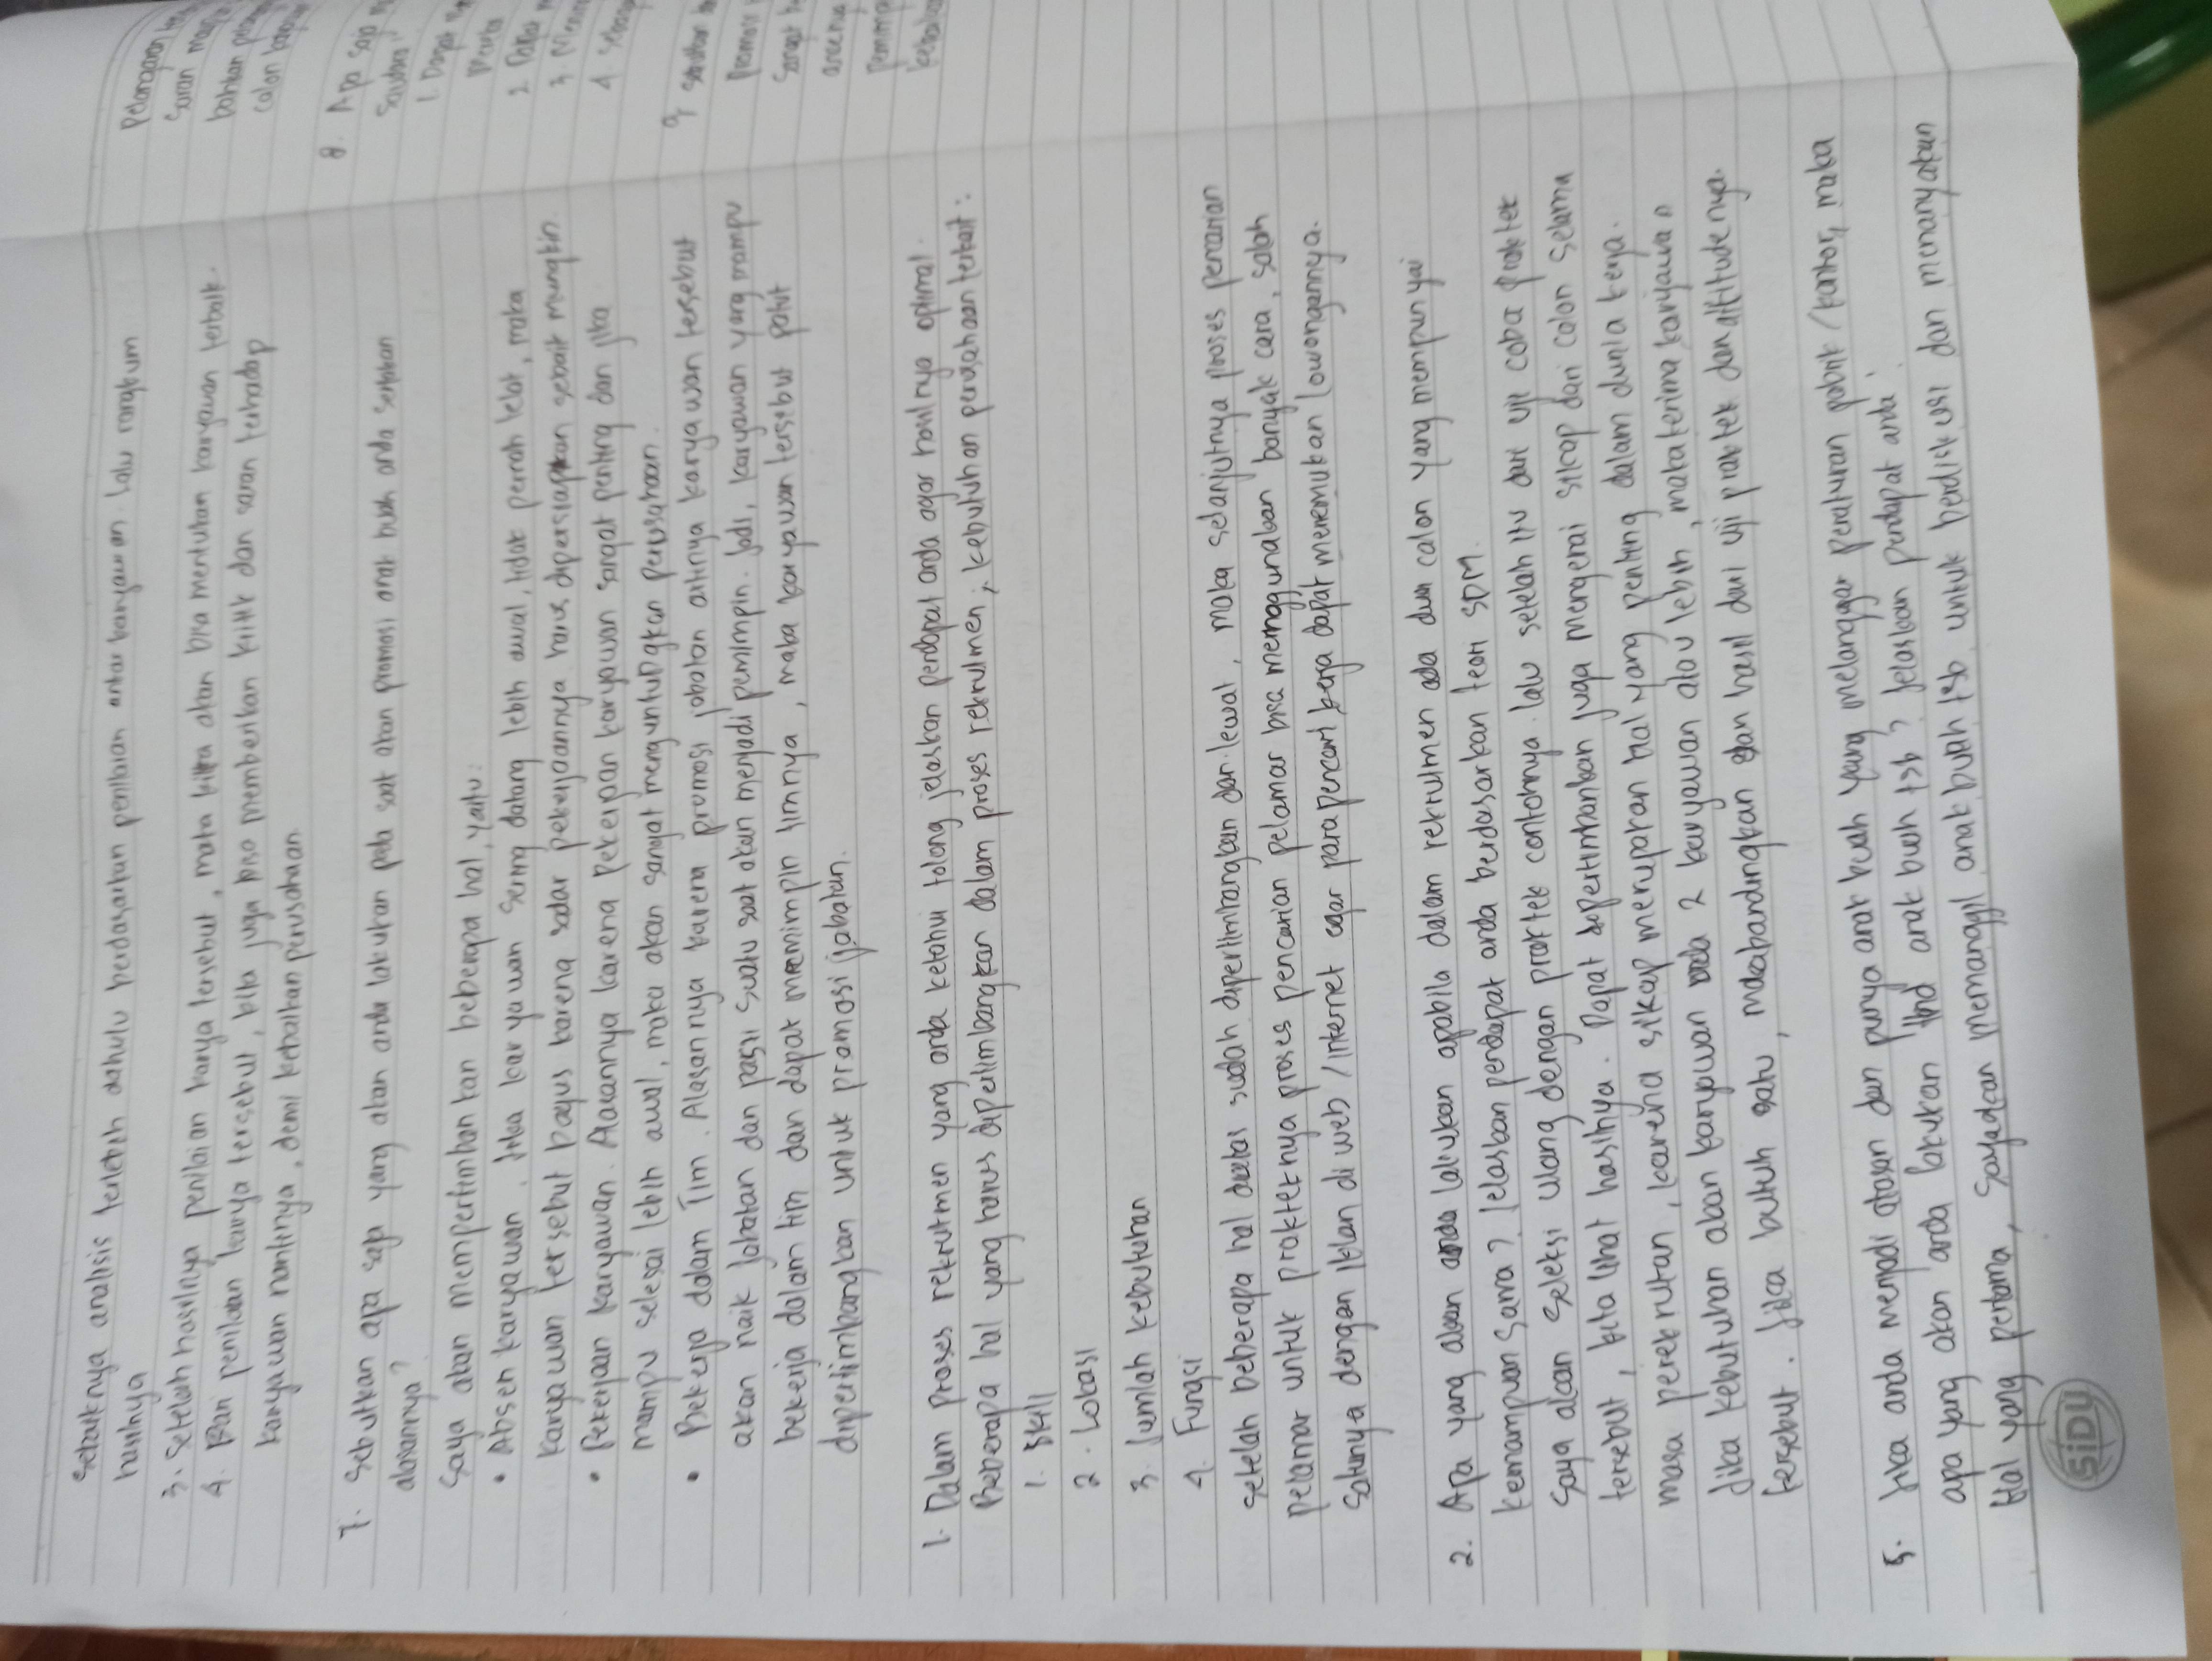 Sebaiknya analisis terlebih dahulu berdasarkan penilaian antar karyawan. Lalu rangkum
hasilnya
3. Setelah hasilnya penilaian karya tersebut, maka kita akan bisa mentukan karyawan terbaik.
4. Dan penilaian karya tersebut, kita juga bisa memberikan kritik dan saran terhadap
karyawan nantinya, demi kebaikan perusahaan.
7. Sebutkan apa saja yang akan anda lakukan pada saat akan promosi anak buah anda sertakan
alasannya?
Saya akan mempertimbankan beberapa hal, yaitu:
• Absen karyawan. Jika karyawan sering datang lebih awal, tidak pernah telat, maka
karyawan tersebut bagus karena sadar pekerjaannya harus dipersiapkan sebaik mungkin.
• Pekerjaan karyawan. Alasannya karena pekerjaan karyawan sangat penting dan jika
mampu selesai lebih awal, maka akan sangat menguntungkan perusahaan.
• Bekerja dalam Tim. Alasannya karena promosi jabatan artinya karyawan tersebut
akan naik jabatan dan pasti suatu saat akan menjadi pemimpin. Jadi, karyawan yang mampu
bekerja dalam tim dan dapat memimpin timnya, maka karyawan tersebut patut
dipertimbangkan untuk promosi jabatan.
1. Dalam proses rekrutmen yang anda ketahui tolong jelaskan pendapat anda agar hasilnya optimal.
Beberapa hal yang harus dipertimbangkan dalam proses rekrutmen; kebutuhan perusahaan terkait:
1. Skill
2. Lokasi
3. Jumlah kebutuhan
4. Fungsi
setelah beberapa hal diatas sudah dipertimbangkan dan lewat, maka selanjutnya proses pencarian
pelamar untuk prakteknya proses pencarian pelamar bisa menggunakan banyak cara, salah
satunya dengan iklan di web / internet agar para pencari kerja dapat menemukan lowongannya.
2. Apa yang akan anda lakukan apabila dalam rekrutmen ada dua calon yang mempunyai
kemampuan sama? Jelaskan pendapat anda berdasarkan teori SDM.
Saya akan seleksi ulang dengan praktek contohnya. lalu setelah itu dari uji coba praktek
tersebut, kita lihat hasilnya. Dapat dipertimbankan juga mengenai sikap dari calon selama
masa perekrutan, karena sikap merupakan hal yang penting dalam dunia kerja.
Jika kebutuhan akan karyawan ada 2 karyawan atau lebih, maka terima karyawan
tersebut. Jika butuh satu, bandingkan dan hasil dari uji praktek dan attitudenya.
5. Jika anda menjadi atasan dan punya anak buah yang melanggar peraturan pabrik / kantor, maka
apa yang akan anda lakukan thd anak buah tsb? Jelaskan pendapat anda!
Hal yang pertama, saya akan memanggil anak buah tsb untuk berdiskusi dan menanyakan
SiDU
8. Apa saja
1. Dapat
2.
3.
4.
9.